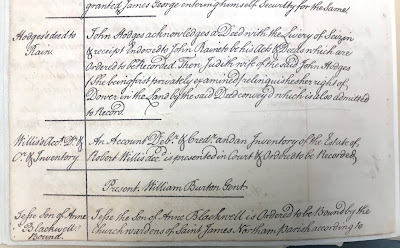 granted James George entring himself Security for the Same
Hodges's deed to
Rain.
John Hodges acknowledges a Deed with the Livery of Seizen
& receipt Endorsed to John Raine to be his Acts & Deeds which are
ordered to be Recorded. Then Judith wife of the said John Hodges
(She being first privately examined) relinquishes her right of
Dower in the Land by the said Deed convey'd which is also admitted
to Record.
Willis's Acct. Dr. &
Cr. & Inventory.
An Account Debr. & Credr. and an Inventory of the Estate of
Robert Willis decd. is presented in Court & Ordered to be Recorded
Present. William Burton Gent.
Jesse Son of Anne
Blackwell
Bound.
Jesse the Son of Anne Blackwell is Ordered to be Bound by the
Church wardens of Saint James. Northam Parish according to